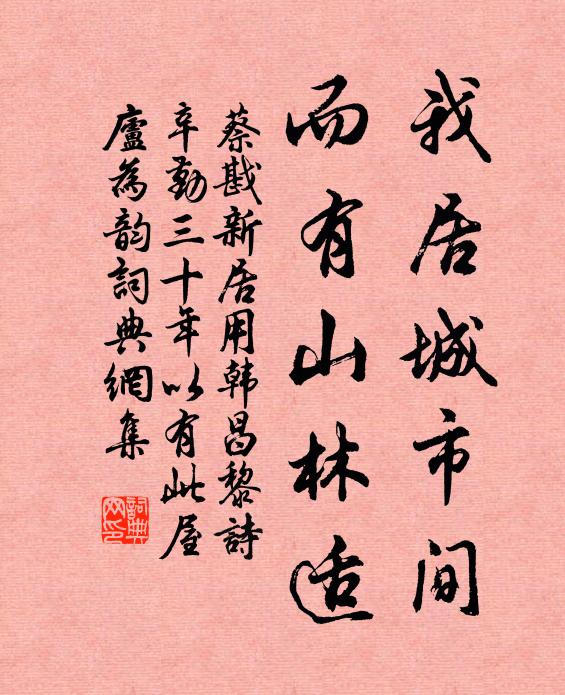 我居城市间
而有山林适
蔡戡新居用韩昌黎詩
辛勤三十年以有此屋
廬為韵詞典網集
詞典网印